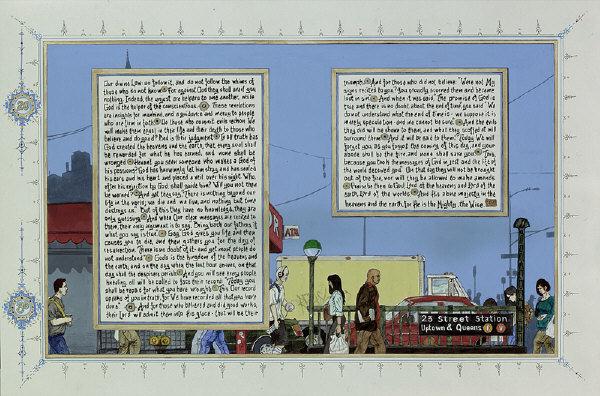 Our divine Law: so follow it, and do not follow the whims of
those who do not know. For against God they shall avail you
nothing. Indeed, the unjust are helpers to one another, while
God is the helper of the conscientious. These revelations
are insights for mankind, and a guidance and mercy to people
who are firm in faith. Do those who commit evils reckon We
will make them equal in their life and their death to those who
believe and do good? Bad is their judgment. In all truth has
God created the heavens and the earth, that every soul shall
be rewarded for what he has earned, and none shall be
wronged. Haven't you seen someone who makes a God of
his passions? God has knowingly let him stray and has sealed
his ears and his heart and placed a veil over his sight. Who,
after his rejection by God, shall guide him? Will you not then
be warned? And yet they say, "There is nothing beyond our
life in the world; we die and we live, and nothing but time
destroys us." But of this they have no knowledge. They are
only guessing. And when Our clear messages are recited to
them, their only argument is to say, "Bring back our fathers, if
what you say is true." Say, "God gives you life and then
causes you to die, and then gathers you for the day of
resurrection. There is no doubt of it - and yet most people do
not understand." God's is the kingdom of the heavens and
the earth, and on the day when the last hour arrives, on that
day shall the deniers perish. And you will see every people
kneeling. All will be called to face their record. "Today you
shall be repaid for what you have wrought. This Our record
speaks of you in truth, for We have recorded all that you have
done." And for those who believed and did good works,
their Lord will admit them into His grace - that will be their
triumph. And for those who did not believe, "Were not My
signs recited to you? You proudly scorned them and became
lost in sin. And when it was said, 'The promise of God is
true and there is no doubt about the end of time' you said 'We
do not understand what the end of time is - we suppose it is
merely speculation - and we cannot be sure.'" And the evils
they did will be shown to them, and what they scoffed at will
surround them. And it will be said to them, "Today We will
forget you as you forgot the coming of this day, and your
abode shall be the fire, and none shall save you. This,
because you took the messages of God in jest and the life of
the world deceived you." On that day they will not be brought
out of the fire, nor will they be allowed to make amends.
Praise be then to God, Lord of the heavens and Lord of the
earth, Lord of the worlds. And His alone majesty in the
heavens and the earth, for He is the Mighty, the Wise.
23 Street Station
Uptown & Queens